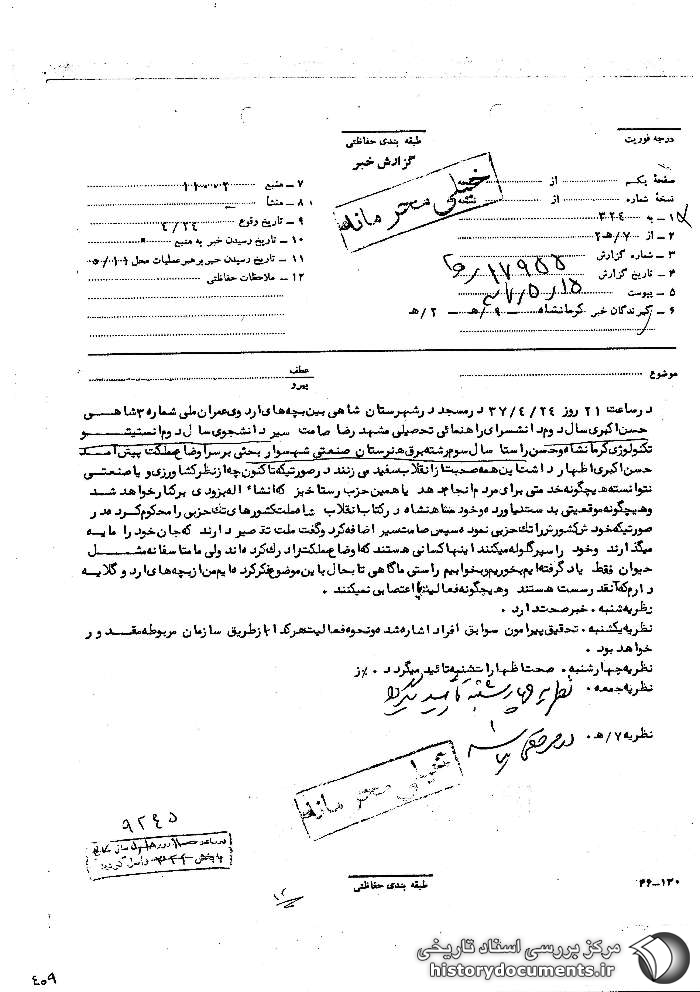 درجه فوریت
طبقه بندی حفاظتی
گزارش خبر
خیلی محرمانه
صفحهٔ یک از
نسخهٔ شماره از
۱ـ به ۳۲۴
۲ ـ از ۷/هـ۲
۳ ـ شماره گزارش ۱۷۹۵۵
۴ ـ تاریخ گزارش ۳۷/۵/۱۵
۵ ـ پیوست
۶ ـ گیرندگان خبر کرمانشاه ۹/هـ ۲/هـ
۷ ـ منبع ۱۱۰۰۲
۸ ـ منشأ
۹ ـ تاریخ وقوع ۴/۲۴
۱۰ ـ تاریخ رسیدن خبر به منبع
۱۱ ـ تاریخ رسیدن خبر برهبر عملیات محل ۵/۱۱
۱۲ ـ ملاحظات حفاظتی
موضوع
عطف
پیرو
در ساعت ۲۱ روز ۳۷/۴/۲۴ در مسجد در شهرستان شاهی بین بچه‌های اردوی عمران ملی شماره ۳ شاهی
حسن اکبری سال دوم دانشسرای راهنمائی تحصیلی مشهد رضا صامت سیر دانشجوی سال دوم انستیتو
تکنولوژی کرمانشاه و حسن راستا سال سوم رشته برق هنرستان صنعتی شهسوار بحثی بر سر اوضاع مملکت پیش آمد
حسن اکبری اظهار داشت این همه صحبت از انقلاب سفید می زنند در صورتیکه تاکنون چه از نظر کشاورزی و یا صنعتی
نتوانسته هیچگونه خدمتی برای مردم انجام دهد یا همین حزب رستاخیز که انشاءاله بزودی برکنار خواهد شد
و هیچگونه موقعیتی بدست نیاورده و خود شاهنشاه در کتاب انقلاب شاه ملت کشورهای تک حزبی را محکوم کرده در
صورتیکه خودش کشورش را تک حزبی نموده سپس صامت سیر اضافه کرد و گفت ملت تقصیر دارند که جان خود را مایه
میگذارند و خود را سپر گلوله میکنند اینها کسانی هستند که اوضاع مملکت را درک کرده اند ولی ما متاسفانه مثل
حیوان فقط یاد گرفته ایم بخوریم و بخوابیم راستی ما گاهی تا بحال باین موضوع فکر کرده ایم من از بچه‌های اردو گلایه
دارم که آنقدر سست هستند و هیچگونه فعالیت یا اعتصابی نمیکنند.
نظریه شنبه. خبر صحت دارد.
نظریه یکشنبه. تحقیق پیرامون سوابق افراد اشاره شده و نحوه فعالیت هر کدام از طریق سازمان مربوطه مقدور
خواهد بود.
نظریه چهارشنبه. صحت اظهارات شنبه تائید میگردد.
نظریه جمعه. نظریه چهارشنبه تأیید میگردد
نظریه ۷/هـ.
خیلی محرمانه
۹۲۴۵
طبقه بندی حفاظتی
۱۲
۳۶-۱۳۰
مرکز بررسی اسناد تاریخی
historydocuments.ir
۴۰۹